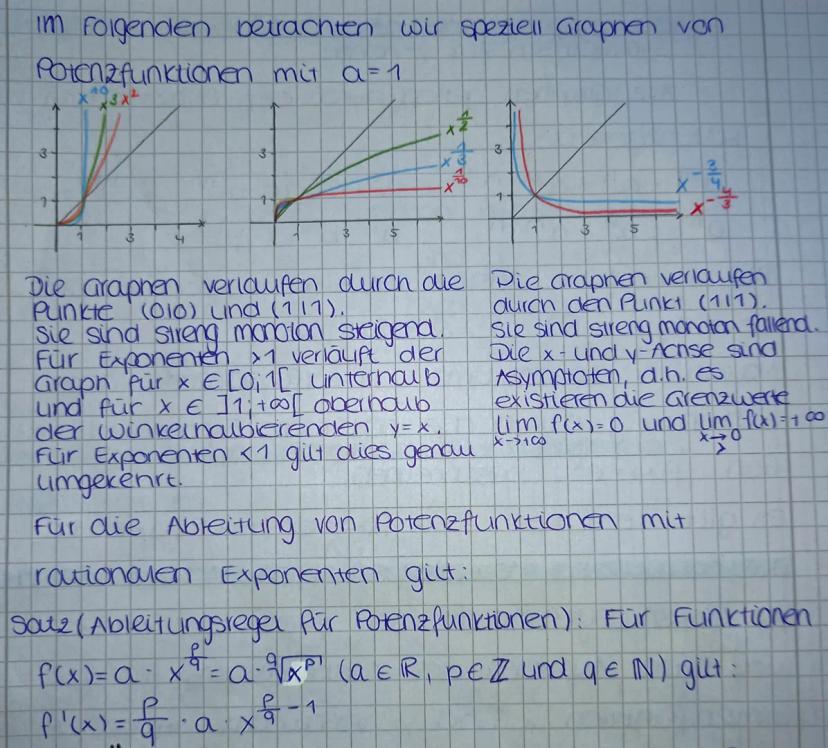 Im Folgenden betrachten wir speziell Graphen von
Potenzfunktionen mit a = 1
x¹⁰ x³ x²
3
1
1 3 4
x^(1/2)
x^(1/3)
x^(1/10)
3
1
1 3 5
3
1
x^(-3/4)
x^(-4/3)
1 3 5
Die Graphen verlaufen durch die
Punkte (0|0) und (1|1).
Sie sind streng monoton steigend.
Für Exponenten >1 verläuft der
Graph für x ∈ [0;1[ unterhalb
und für x ∈ ]1;+∞[ oberhalb
der Winkelhalbierenden y=x.
Für Exponenten <1 gilt dies genau
umgekehrt.
Die Graphen verlaufen
durch den Punkt (1|1).
Sie sind streng monoton fallend.
Die x- und y-Achse sind
Asymptoten, d.h. es
existieren die Grenzwerte
lim f(x)=0 und lim f(x)=+∞
x→+∞ x→0
>
Für die Ableitung von Potenzfunktionen mit
rationalen Exponenten gilt:
Satz (Ableitungsregel für Potenzfunktionen): Für Funktionen
f(x) = a · x^(p/q) = a · ^q√(x^p) (a ∈ ℝ, p ∈ ℤ und q ∈ ℕ) gilt:
f'(x) = p/q · a · x^(p/q - 1)